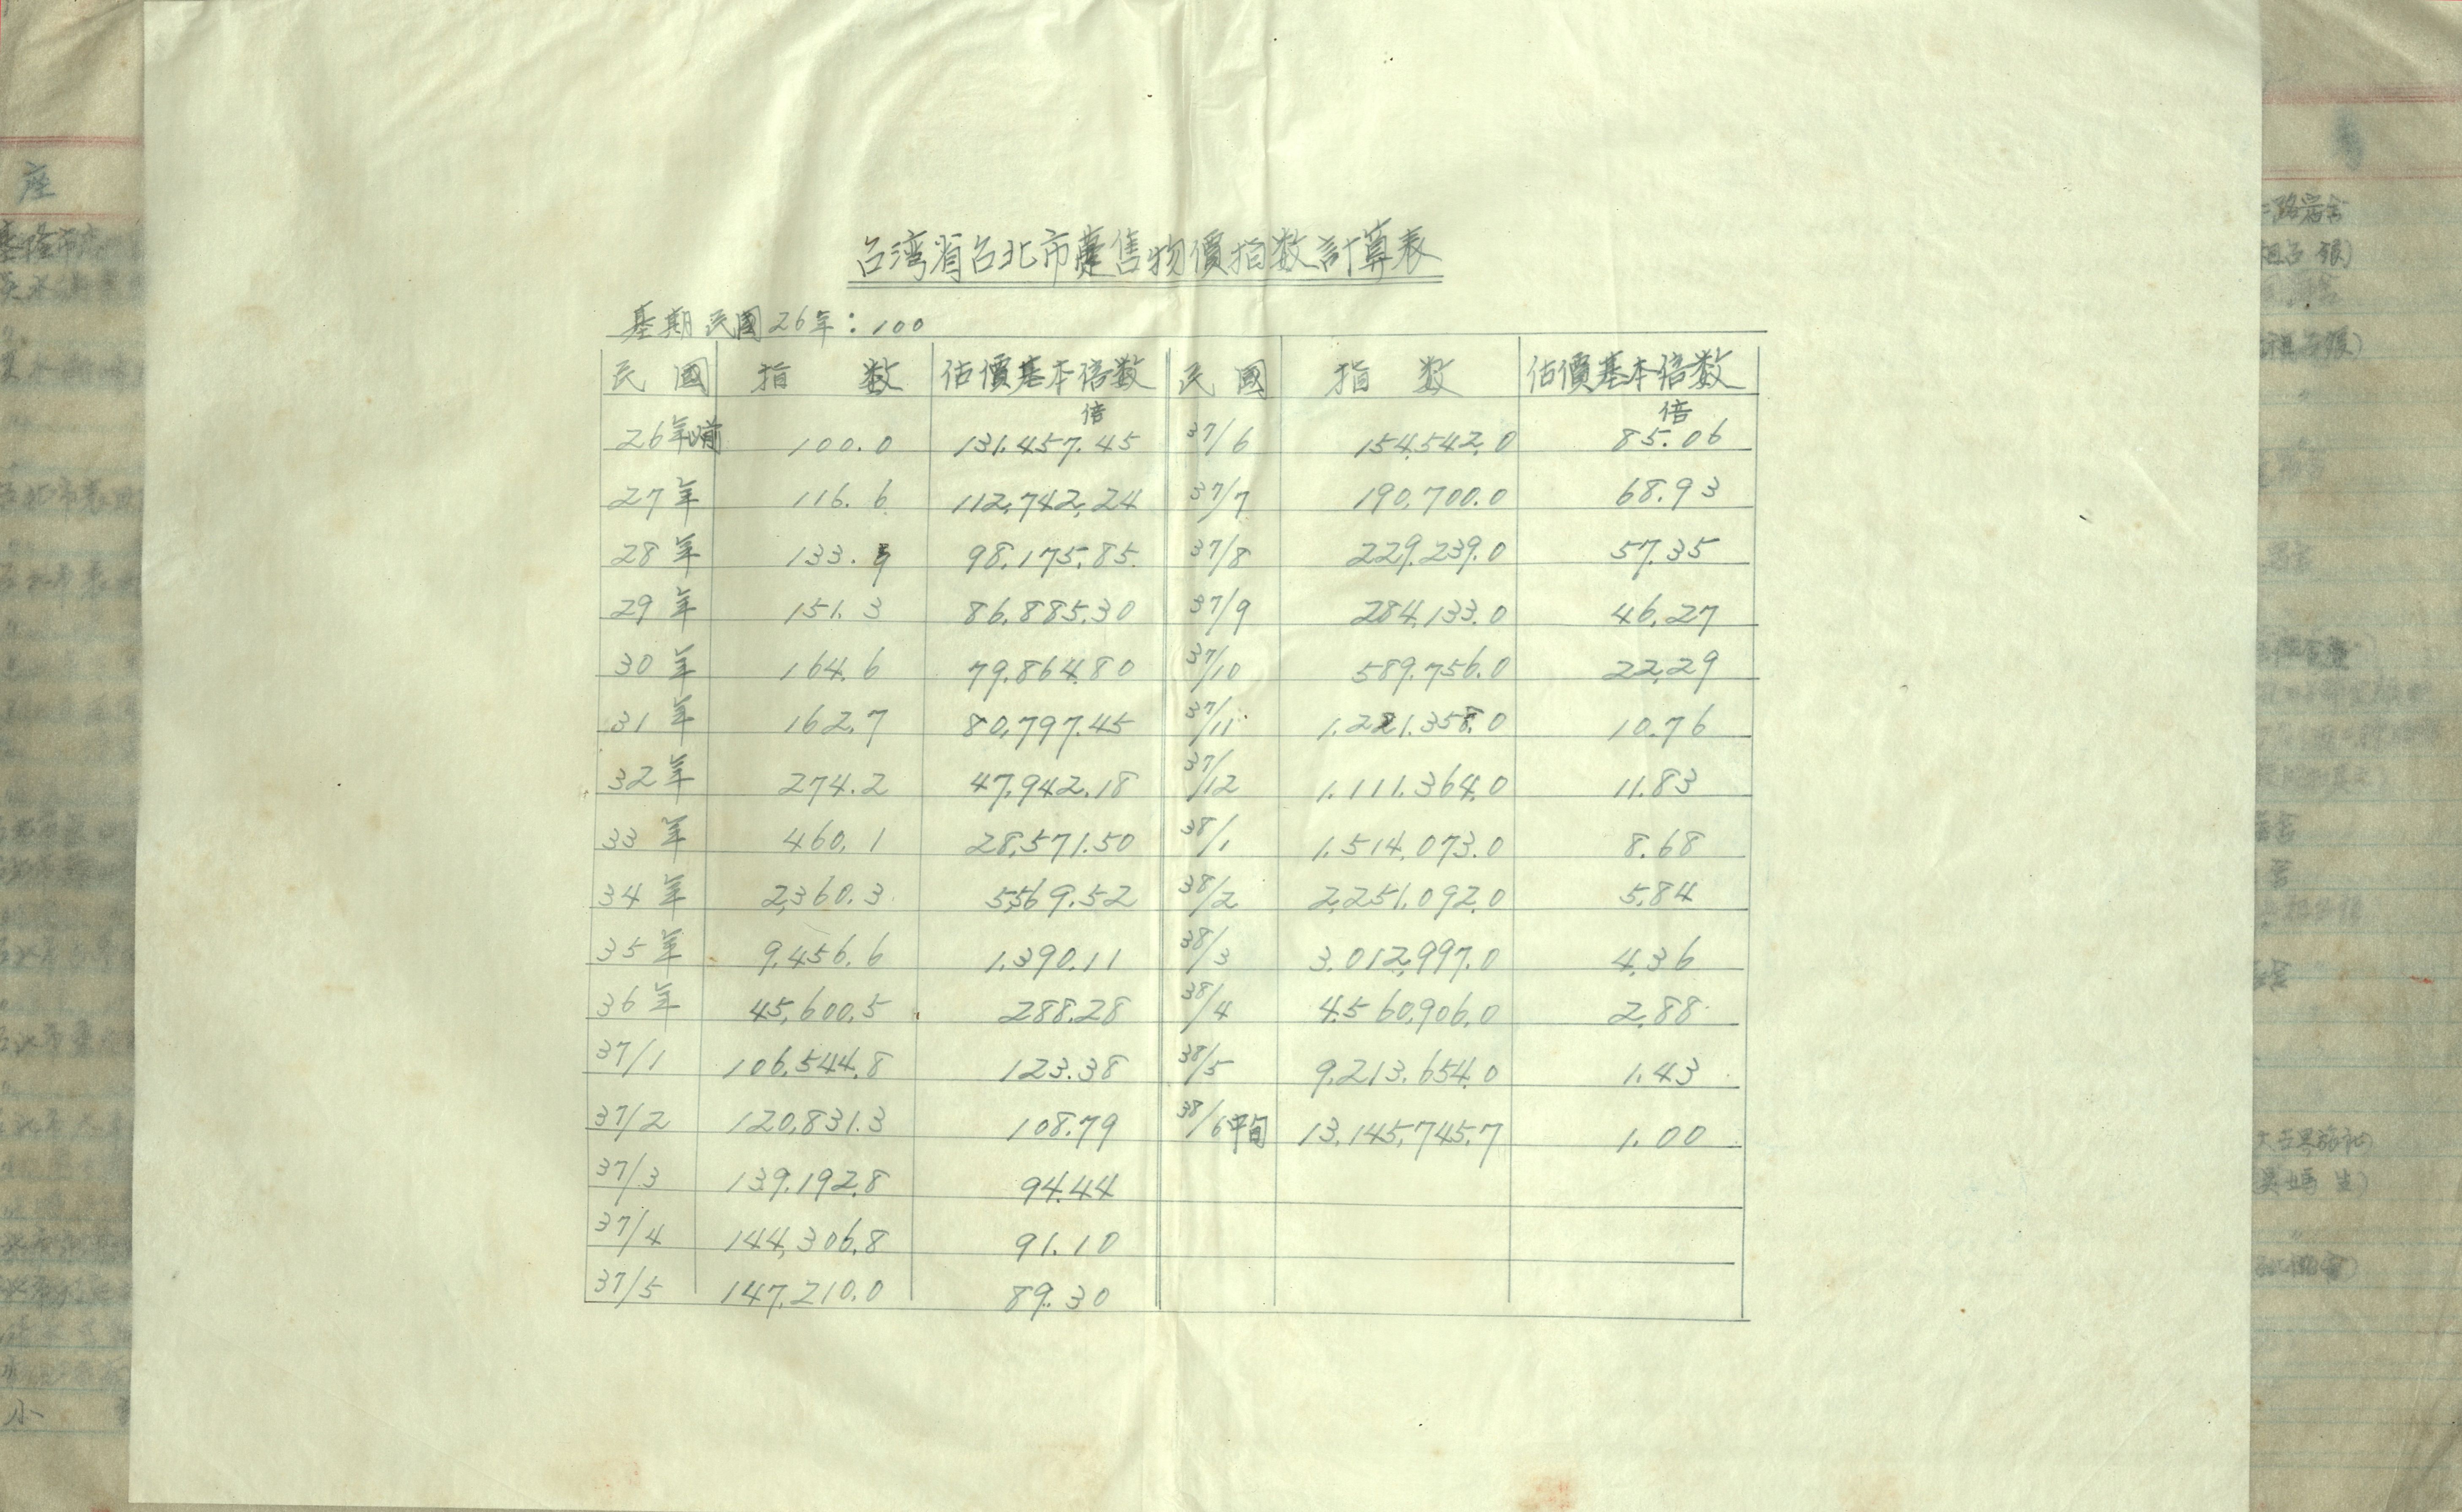 台湾省台北市躉售物價指数計算表
基期民國26年：100
民國 指数 估價基本倍数 民國 指数 估價基本倍数
倍 倍
26年前 100.0 131.457.45 37/6 154,542.0 85.06
27年 116.6 112,742.24 37/7 190,700.0 68.93
28年 133.9 98.175.85 37/8 229,239.0 57.35
29年 151.3 86.885.30 37/9 284,133.0 46.27
30年 164.6 79.864.80 37/10 589,756.0 22.29
31年 162.7 80,797.45 37/11 1.221.358.0 10.76
32年 274.2 47,942.18 37/12 1.111.364.0 11.83
33年 460.1 28,571.50 38/1 1.514,073.0 8.68
34年 2,360.3 5,569.52 38/2 2,251.092.0 5.84
35年 9,456.6 1.390.11 38/3 3.012,997.0 4.36
36年 45,600.5 288.28 38/4 4.560,906.0 2.88
37/1 106,544.8 123.38 38/5 9,213.654.0 1.43
37/2 120,831.3 108.79 38/6 13.145,745.7 1.00
37/3 139.192.8 94.44
37/4 144,306.8 91.10
37/5 147,210.0 89.30
座
小